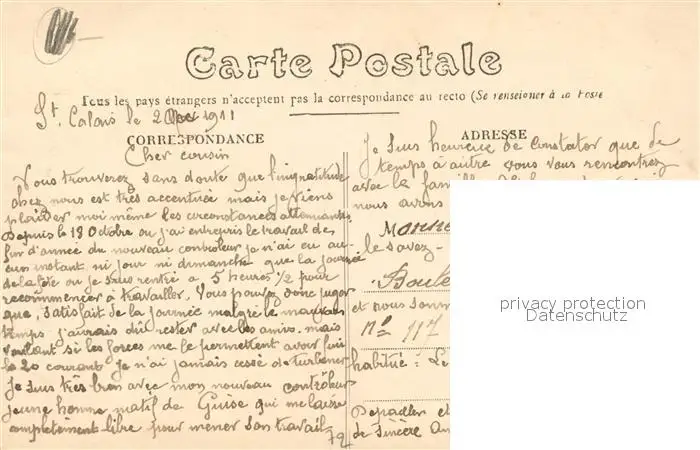 Carte Postale
Tous les pays étrangers n'acceptent pas la correspondance au recto (Se renseigner à la Poste
St Calais le 2 1911
CORRESPONDANCE
Cher cousin
Vous trouverez sans doute que l'ingratitude
chez nous est très accentuée mais je viens
plaider moi même les circonstances attenuantes
Depuis le 18 Octobre ou j'ai entrepris le travail de
fin d'année du nouveau controleur je n'ai eu au-
cun instant ni jour ni dimanche que la journée
de la fête ou je suis rentré à 5 heures 1/2 pour
recommencer à travailler. Vous pouvez donc juger
que, satisfait de la journée malgré le mauvais
temps j'aurais dû rester avec les amis. mais
voulant si les forces me le permettent avoir fini
le 20 courant je n'ai jamais cessé de turbiner
Je suis très bien avec mon nouveau contrôleur
jeune homme natif de Guise qui me laisse
complètement libre pour mener son travail
79
ADRESSE
Je suis heureux de constater que de
temps à autre vous vous rencontrez
avec la famille
nous avons
le savez -
Boule
et nous somm
N° 117
habitué : Le
Depadler et
de sincère
privacy protection
Datenschutz